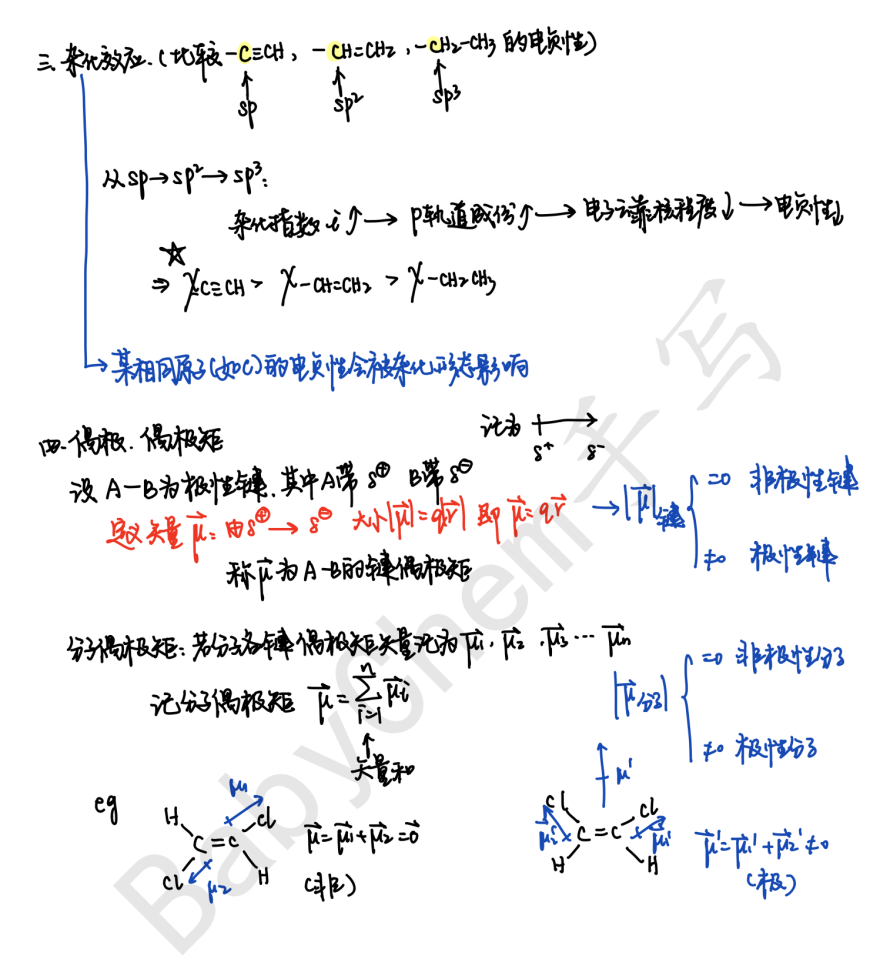 三.杂化效应.(比较-C≡CH, -CH=CH₂, -CH₂-CH₃的电负性)
sp sp² sp³
从sp→sp²→sp³:
杂化指数i↑→p轨道成份↑→电子云靠核程度↓→电负性↓
☆
⇒ χ-C≡CH > χ-CH=CH₂ > χ-CH₂CH₃
→某相同原子(如C)的电负性会被杂化形态影响
四.偶极.偶极矩 记为 +→
δ⁺ δ⁻
设A-B为极性键,其中A带δ⊕ B带δ⊖
定义矢量μ⃗:由δ⊕→δ⊖ 大小|μ⃗|=q|r⃗| 即μ⃗=qr⃗ →|μ⃗|键 { =0 非极性键
≠0 极性键
称μ⃗为A-B的键偶极矩
分子偶极矩:若分子各键偶极矩矢量记为μ⃗₁,μ⃗₂,μ⃗₃…μ⃗n
记分子偶极矩 μ⃗=∑ⁿᵢ₌₁μ⃗i |μ⃗分子| { =0 非极性分子
≠0 极性分子
↑
矢量和
eg
H Cl
C=C
Cl H
μ₁
μ₂
μ⃗=μ⃗₁+μ⃗₂=0⃗
(非极)
μ'
Cl Cl
C=C
H H
μ⃗₂' μ⃗₁'
μ⃗'=μ⃗₁'+μ⃗₂'≠0
(极)
BabyChem手写